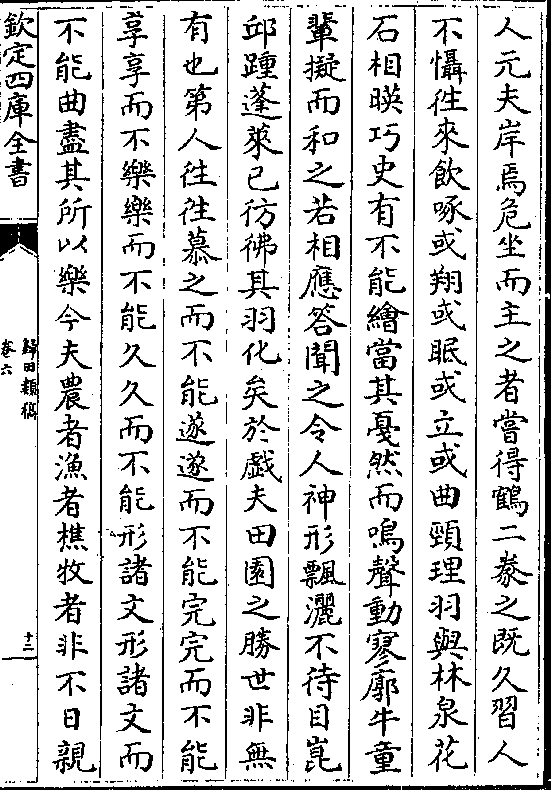 人元夫岸焉危坐而主之者嘗得鶴二豢之既久習人
不懾徃來飲啄或翔或眠或立或曲頸理羽與林泉花
石相暎巧史有不能繪當其戞然而鳴聲動寥廓牛童
輩擬而和之若相應答聞之令人神形飄灑不待目崑
邱踵蓬萊已彷彿其羽化矣於戲夫田園之勝世非無
有也第人徃徃慕之而不能遂遂而不能完完而不能
享享而不樂樂而不能久久而不能形諸文形諸文而
不能曲盡其所以樂今夫農者漁者樵牧者非不日親
欽定四庫全書
歸田類稿
卷六
十二